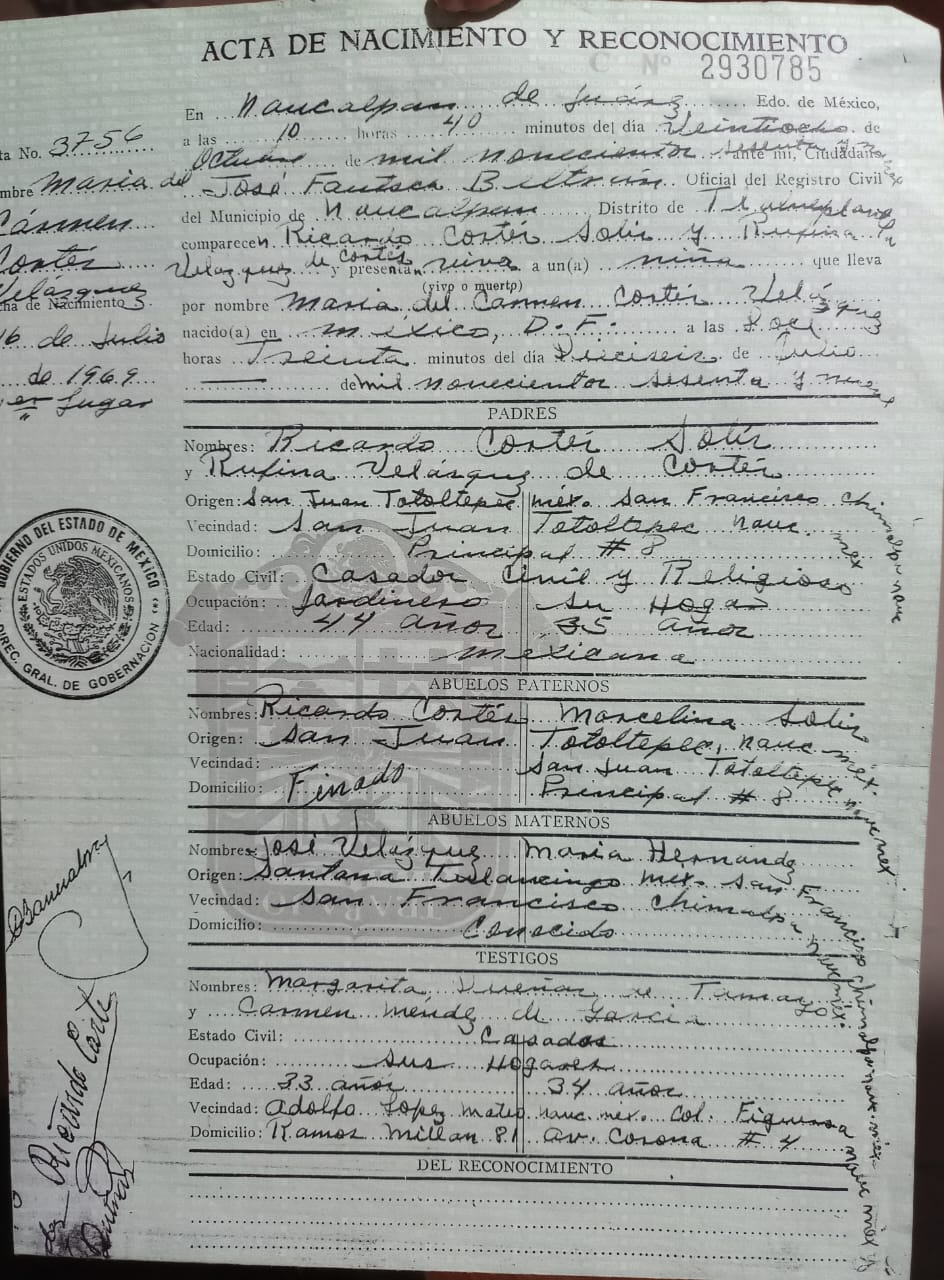 ACTA DE NACIMIENTO Y RECONOCIMIENTO
C Nº 2930785
En Naucalpan de Juárez Edo. de México,
a las 10 horas 40 minutos del día Veintiocho de
Octubre de mil novecientos sesenta y nueve ante mi, Ciudadano
José Beltrán Oficial del Registro Civil
del Municipio de Naucalpan Distrito de Tlalnepantla
comparecen Ricardo Cortés Solís y Rufina
Velázquez de Cortés y presentan viva a un(a) niña que lleva
(vivo o muerto)
por nombre Maria del Carmen Cortés Velázquez
nacido(a) en México, D.F. a las Doce
horas Treinta minutos del día Dieciseis de Julio
de mil novecientos sesenta y nueve
ta No. 3756
mbre Maria del
Cármen
Cortés
Velasquez
ha de Nacimiento
16 de Julio
de 1969
en lugar
PADRES
Nombres: Ricardo Cortés Solís
y Rufina Velásquez de Cortés
Origen: San Juan Totoltepec méx. San Francisco Chimalpa nauc mex
Vecindad: San Juan Totoltepec nauc.
Domicilio: Principal # 8
Estado Civil: Casados Civil y Religioso
Ocupación: Jardinero Su Hogar
Edad: 44 años 35 años
Nacionalidad: mexicana
ABUELOS PATERNOS
Nombres: Ricardo Cortés Marcelina Solis
Origen: San Juan Totoltepec, nauc méx.
Vecindad: San Juan Totoltepec nauc mex
Domicilio: Finado Principal # 8
ABUELOS MATERNOS
Nombres: José Velázquez Maria Hernandez
Origen: Santana mex. San Francisco Chimalpa nauc. méx.
Vecindad: San Francisco Chimalpa nauc méx.
Domicilio: Conocido
TESTIGOS
Nombres: Margarita de Tamayo
y Carmen Mendez de Garcia
Estado Civil: Casados
Ocupación: sus Hogares
Edad: 33 años 34 años
Vecindad: Adolfo Lopez mateo nauc. mex. Col. Figueroa nauc mex
Domicilio: Ramos Millan 81 Av. Corona # 4
DEL RECONOCIMIENTO
GOBIERNO DEL ESTADO DE MEXICO
ESTADOS UNIDOS MEXICANOS
DIREC. GRAL. DE GOBERNACION
Ricardo Corte